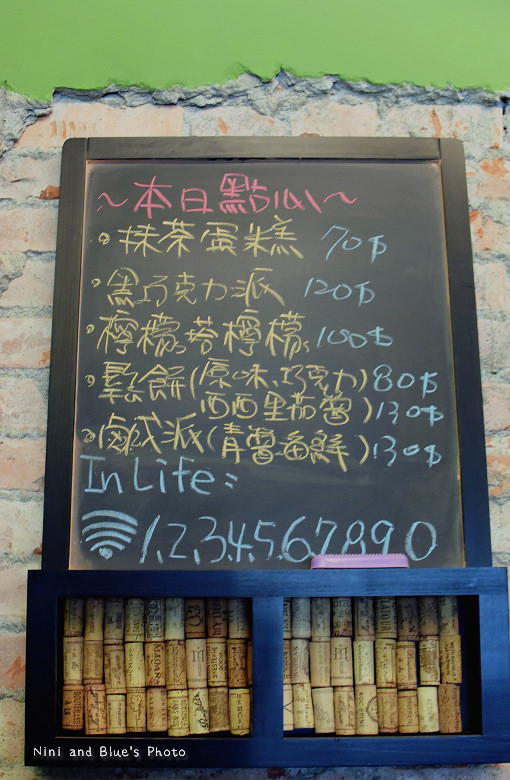 ～本日點心～
抹茶蛋糕 70$
黑巧克力派 120$
檸檬塔檸檬 100$
鬆餅(原味、巧克力)80$
西西里茄醬)130$
鹹派(青醬海鮮)130$
In Life:
1,2,3,4,5,6,7,8,9,0
Nini and Blue's Photo